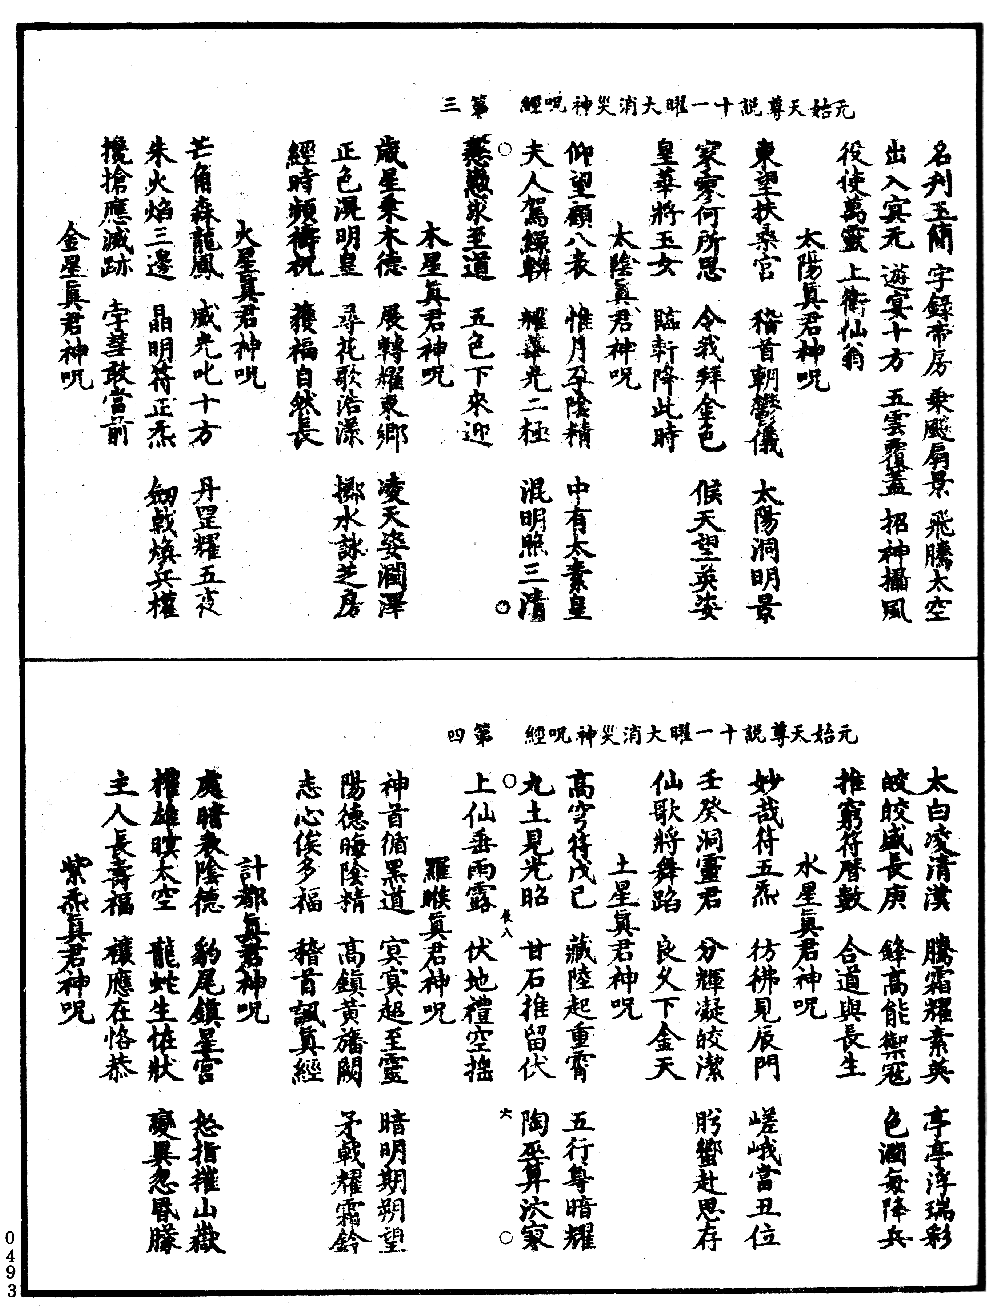 元始天尊說十一曜大消災神呪經　第三
名列玉簡　字錄帝房　乘飈扇景　飛騰太空
出入冥元　遊宴十方　五雲覆蓋　招神攝風
役使萬靈　上衛仙翁
太陽眞君神呪
東望扶桑宮　稽首朝鬱儀　太陽洞明景
寂寥何所思　令我拜金色　候天望英姿
皇華將玉女　臨軒降此時
太陰眞君神呪
仰望顧八表　惟月孕陰精　中有太素皇
夫人駕縹軿　耀華光二極　混明照三清
慇懃求至道　五色下來迎
木星眞君神呪
歲星乘木德　展轉耀東鄉　凌天姿潤澤
正色混明皇　尋花歌浩漾　擲水詠芝房
經時頻禱祝　獲福自然長
火星眞君神呪
芒角森龍鳳　威光叱十方　丹罡耀五夜
朱火焰三邊　晶明符正炁　劍戟煥兵權
攙搶應滅跡　孛彗敢當前
金星眞君神呪
元始天尊說十一曜大消災神呪經　第四
太白凌清漢　騰霜耀素英　亭亭浮瑞彩
皎皎盛長庚　鋒高能禦寇　色潤每降兵
推窮符曆數　合道與長生
水星眞君神呪
妙哉符五炁　彷彿見辰門　嵯峨當丑位
壬癸洞靈君　分輝凝皎潔　肹蠁赴思存
仙歌將舞蹈　良久下金天
土星眞君神呪
高穹符戊己　藏陸起重霄　五行尊暗耀
九土見光昭　甘石推留伏　陶巫算泬寥
辰八　六
上仙垂雨露　伏地禮空搖
羅睺眞君神呪
神首循黑道　冥冥超至靈　暗明期朔望
陽德晦陰精　高鎭黃旛闕　矛戟耀霜鈴
志心俟多福　稽首諷眞經
計都眞君神呪
處暗表陰德　豹尾鎭星宮　怒指摧山嶽
權雄瞙太空　龍蛇生怪狀　變異忽昏朦
主人長壽福　禳應在恪恭
紫炁眞君神呪
0493